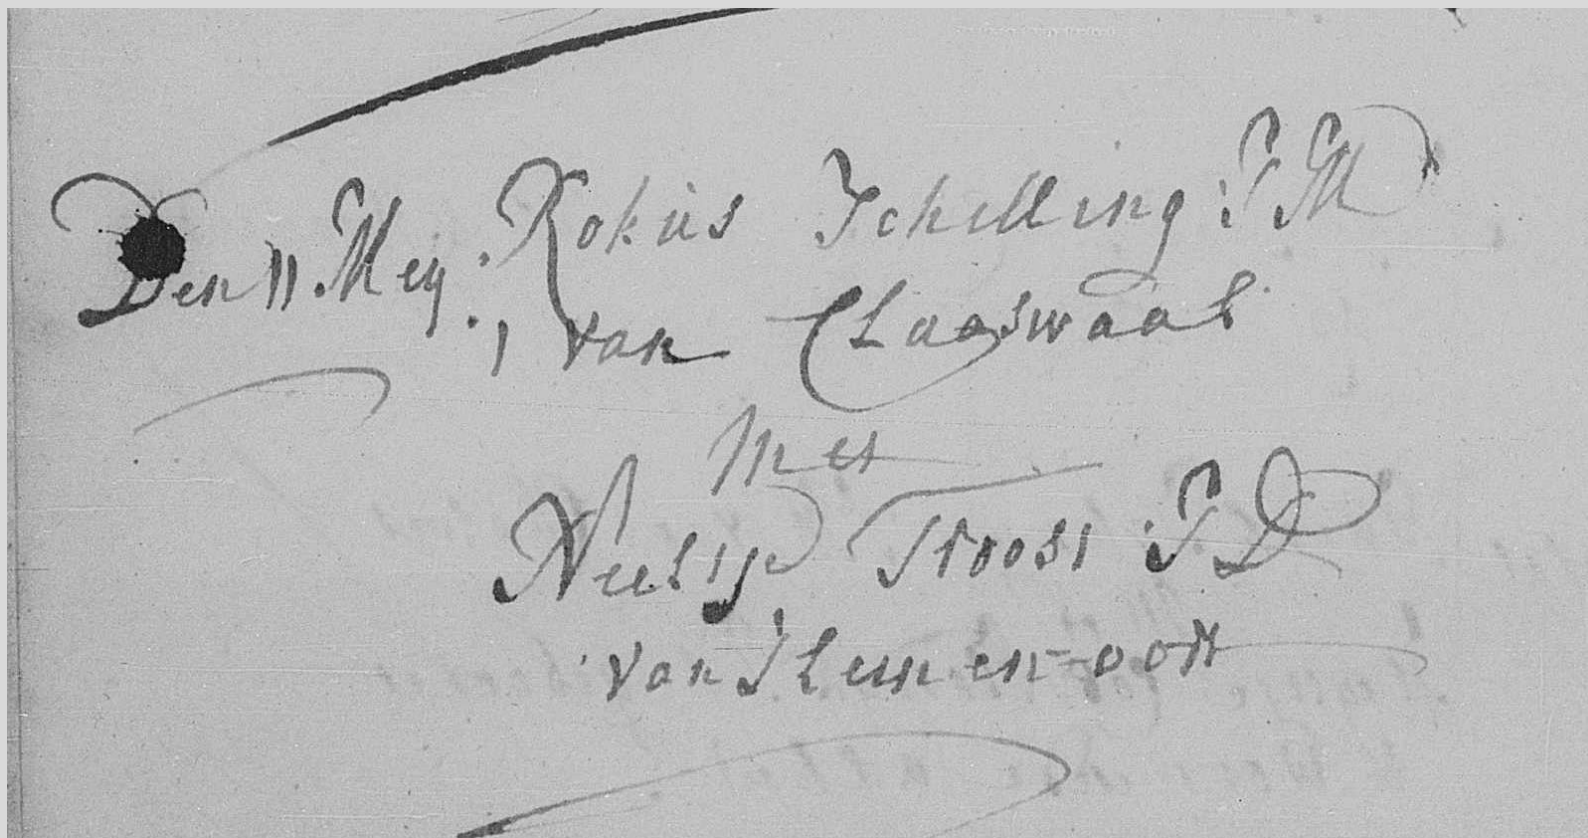 Den 11 Meij: Rokus Schilling J M
van Claaswaal
Met
Neeltje Troost J D
van